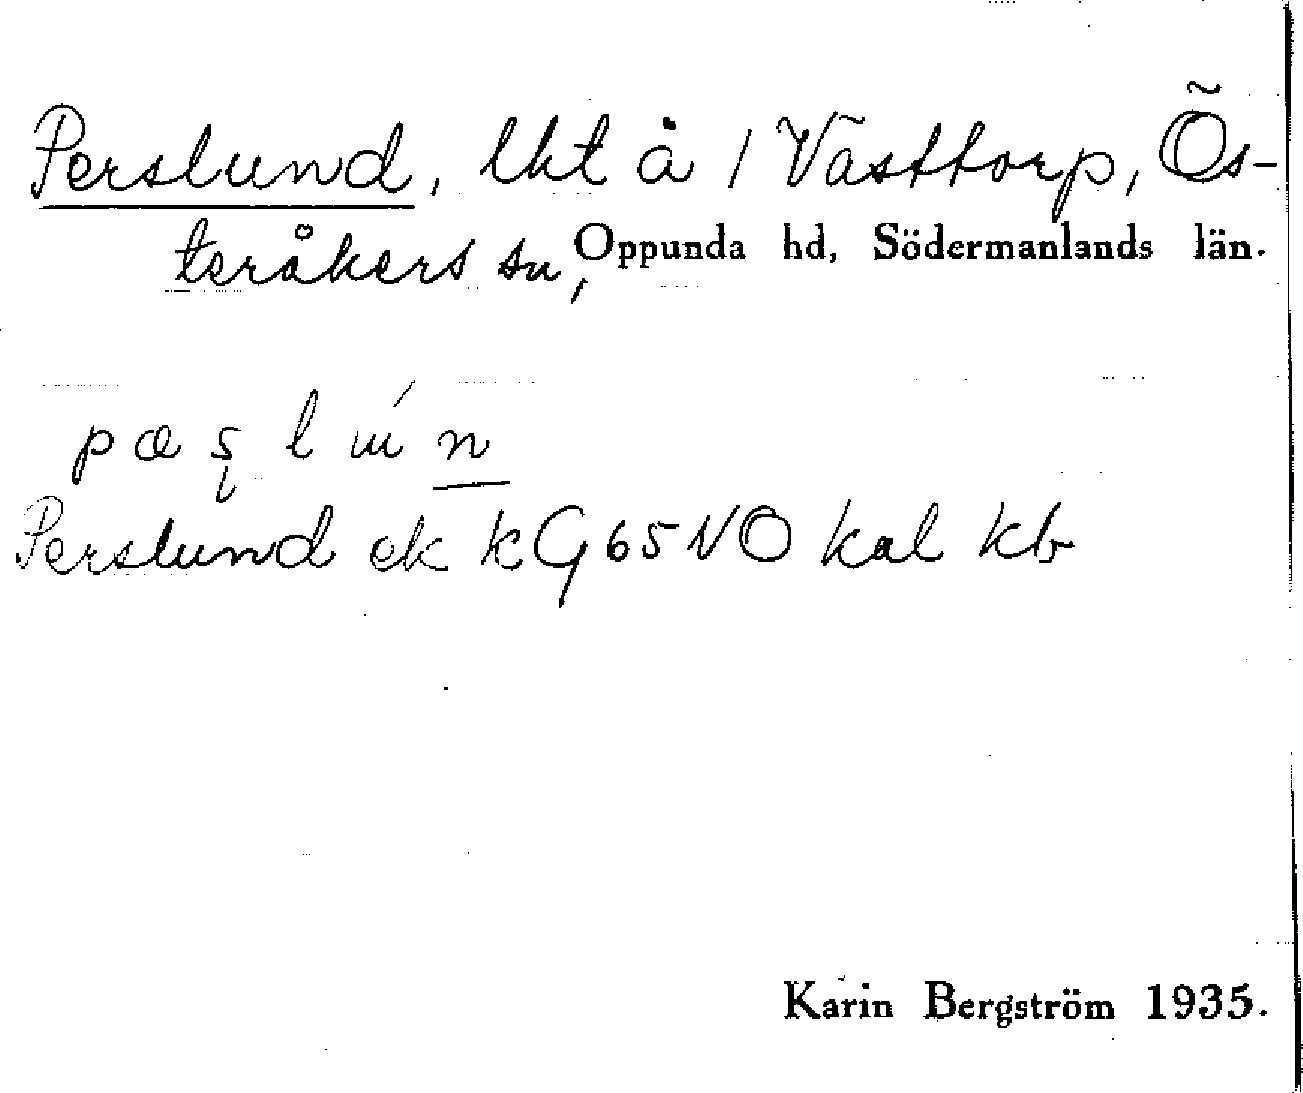 Perslund, lht å 1 Västtorp, Ös-
teråkers sn, Oppunda hd, Södermanlands län.
pæʂlɯ́n
Perslund ek kG65NO kal kb
Karin Bergström 1935.